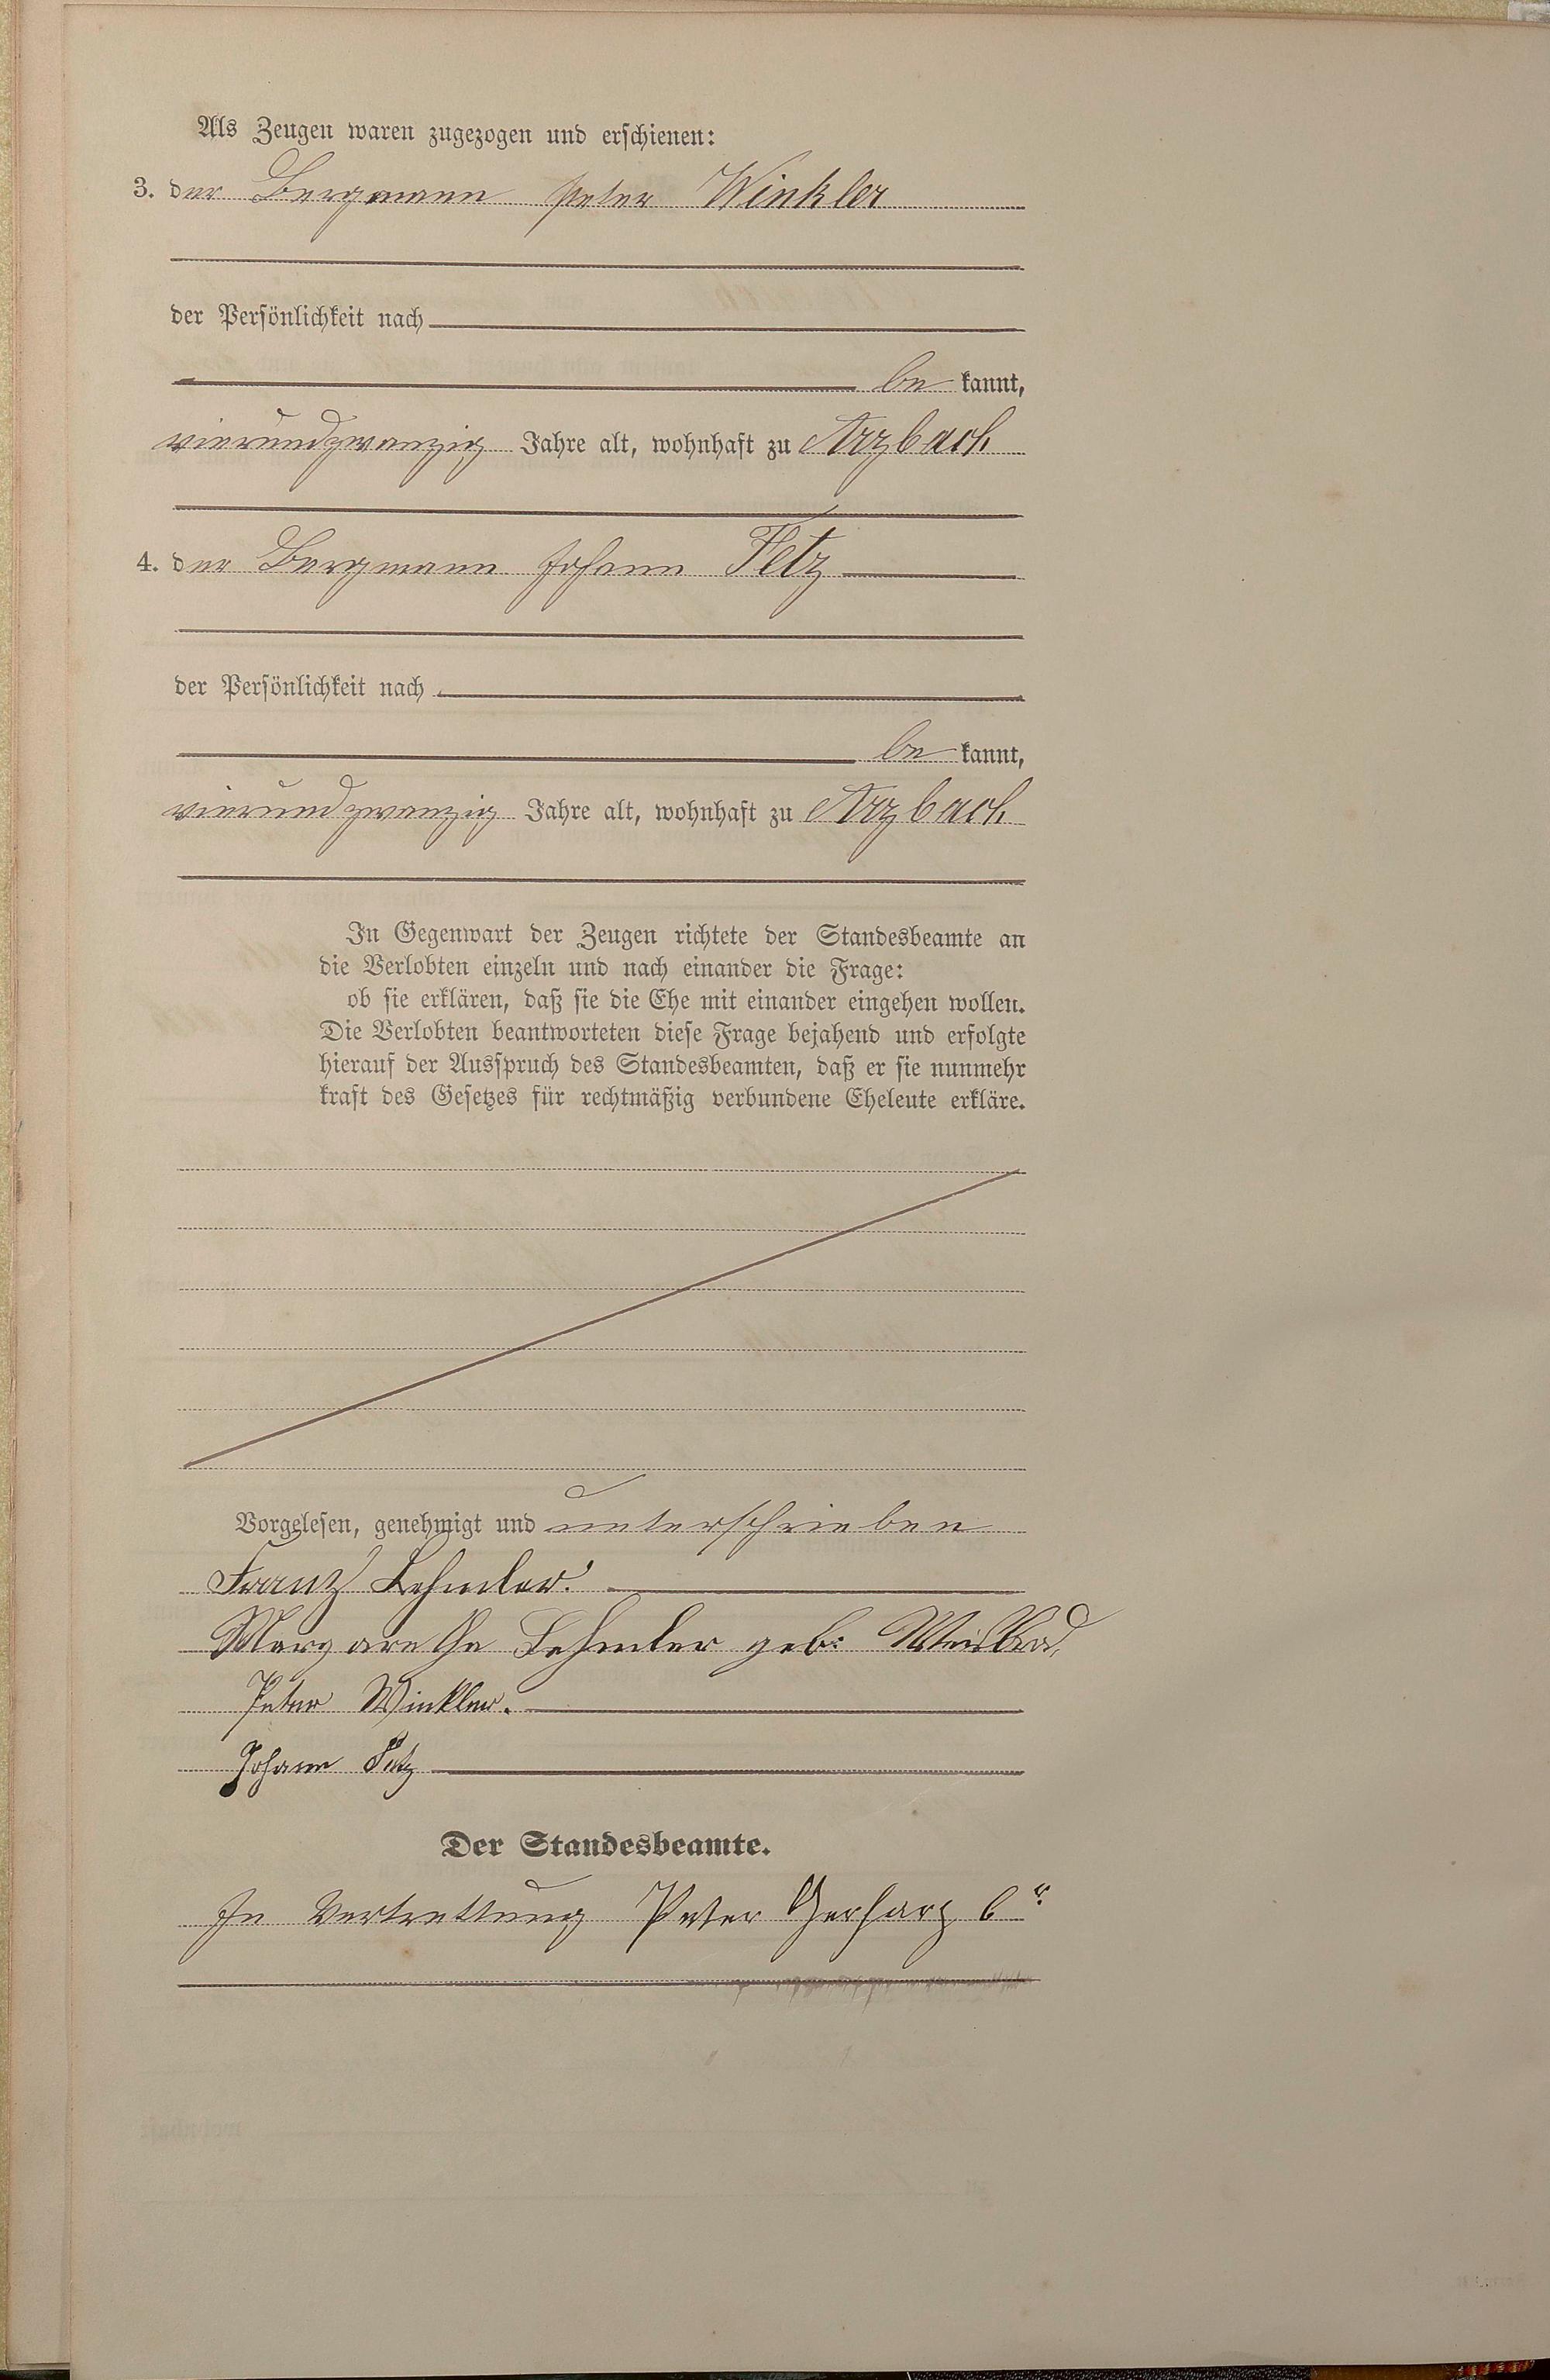 Als Zeugen waren zugezogen und erschienen:
3. der Bergmann Peter Winkler
der Persönlichkeit nach
be kannt,
vierundzwanzig Jahre alt, wohnhaft zu Arzbach
4. der Bergmann Johann Fetz
der Persönlichkeit nach
be kannt,
vierundzwanzig Jahre alt, wohnhaft zu Arzbach
In Gegenwart der Zeugen richtete der Standesbeamte an
die Verlobten einzeln und nach einander die Frage:
ob sie erklären, daß sie die Ehe mit einander eingehen wollen.
Die Verlobten beantworteten diese Frage bejahend und erfolgte
hierauf der Ausspruch des Standesbeamten, daß er sie nunmehr
kraft des Gesetzes für rechtmäßig verbundene Eheleute erkläre.
Vorgelesen, genehmigt und unterschrieben
Franz Lehmler.
Margarethe Lehmler geb:
Peter Winkler.
Johann Fetz
Der Standesbeamte.
In Vertrettung Peter Gerharz 6r